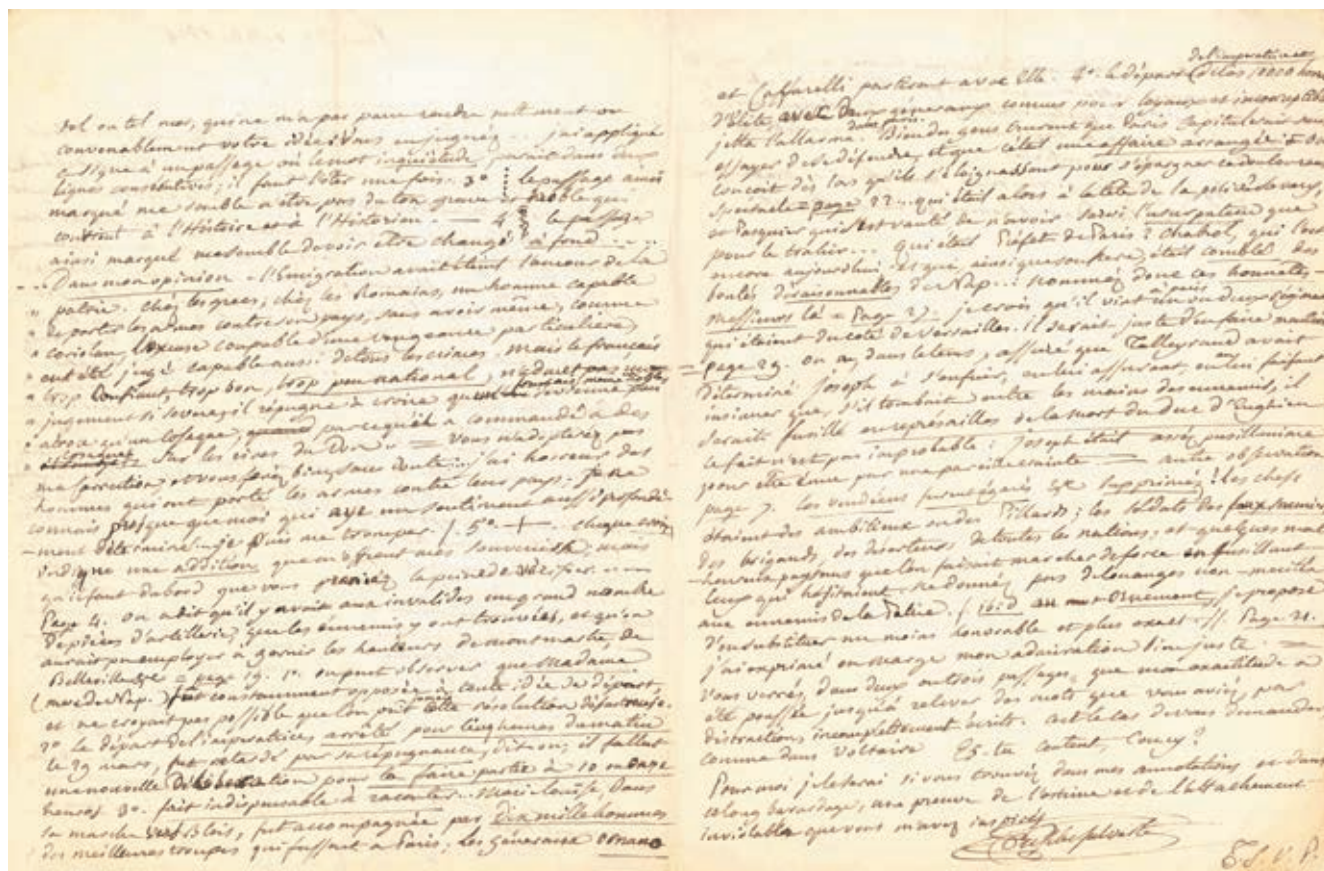 tel ou tel mot, qui ne m'a pas paru rendre nettement ou
convenablement votre idée. Vous en jugerez... j'ai appliqué
ce signe à un passage où le mot inquiétude paraît dans deux
lignes consécutives; il faut l'ôter une fois. 3° le passage ainsi
marqué me semble n'être pas du ton grave et noble qui
convient à l'Histoire et à l'Historien. — 4° le passage
ainsi marqué me semble devoir être changé à fond ...
Dans mon opinion — l'Emigration avait éteint l'amour de la
patrie. chez les grecs, chez les Romains, un homme capable
de porter les armes contre son pays, sans avoir même, comme
coriolan, l'excuse coupable d'une vengeance particulière,
eut été jugé capable aussi de tous les crimes. mais le français
trop confiant, trop bon, trop peu national, n'admet pas un
jugement si sévère, il répugne à croire
qu'un cosaque, parcequ'il a commandé à des
cosaques sur les rives du Don. = Vous n'adopterez pas
ma correction et vous ferez bien, sans doute... j'ai horreur des
hommes qui ont porté les armes contre leur pays; je ne
connais presque que moi qui aye un sentiment aussi profondé-
-ment déterminé... je puis me tromper /. 5° + chaque croix
indique une addition que m'offrent mes souvenirs, mais
qu'il faut d'abord que vous preniez la peine de vérifier.
Page 4. on a dit qu'il y avait aux invalides un grand nombre
de pièces d'artillerie, que les ennemis y ont trouvées, et qu'on
aurait pu employer à garnir les hauteurs de montmartre, de
Belleville &c = page 19. 1° on peut observer que Madame
(mère de Nap.) fut constamment opposée à toute idée de départ,
et ne croyait pas possible que l'on prît cette résolution désastreuse.
2° le départ de l'impératrice, arrêté pour cinq heures du matin
le 29 mars, fut retardé par sa répugnance, dit-on; il fallut
une nouvelle délibération pour la faire partir à 10 ou onze
heures. 3° fait indispensable à raconter. Marie Louise, dans
sa marche vers Blois, fut accompagnée par dix mille hommes
des meilleures troupes qui fussent à Paris; les généraux Ornano
de l'impératrice et
et Caffarelli partirent avec elle. 4° le départ de ces 10000 hom.
d'élite, avec deux généraux connus pour loyaux et incorruptibles
jetta l'allarme dans paris. Bien des gens crurent que Paris capitulerait sans
essayer de se défendre, et que c'était une affaire arrangée. = on
conçoit dès lors qu'ils s'éloignassent pour s'épargner ce douloureux
spectacle = page 22... qui était alors à la tête de la police? Savary,
et Pasquier qui s'est vanté de n'avoir servi l'usurpateur que
pour le trahir... qui était Préfet de Paris? Chabrol, qui l'est
encore aujourd'hui, et qui, ainsi que son frère, était comblé des
bontés déraisonnables de Nap...: nommez donc ces honnêtes
messieurs là = Page 27. je crois qu'il vint à paris un ou deux régimens
qui étaient du côté de Versailles. Il serait juste d'en faire mention
= page 29. on a, dans le tems, assuré que Talleyrand avait
déterminé Joseph à s'enfuir, en lui assurant, ou en lui faisant
insinuer que, s'il tombait entre les mains des ennemis, il
serait fusillé en représailles de la mort du Duc d'Enghien
le fait n'est pas improbable: Joseph était assez pusillanime
pour être ému par une pareille crainte = autre observation
page 7. les vendéens furent égarés &c supprimez! les chefs
étaient des ambitieux ou des Pillards; les soldats des faux sauniers
des brigands, des déserteurs de toutes les nations, et quelques mal-
-heureux paysans que l'on faisait marcher de force en fusillant
ceux qui hésitaient. ne donnez pas de louanges
aux ennemis de la Patrie. / ibid au mot Ornement, je propose
d'en substituer un moins honorable et plus exact. //. Page 21.
j'ai exprimé en marge mon admiration bien juste =
Vous verrez, dans deux ou trois passages, que mon exactitude a
été poussée jusqu'à relever des mots que vous aviez, par
distraction, incomplettement écrits. c'est le cas de vous demander,
comme dans Voltaire Es-tu content, Coucy?
Pour moi je le serai si vous trouvez dans mes annotations et dans
ce long bavardage, une preuve de l'estime et de l'attachement
inviolable que vous m'avez inspirés
T. S. V. P.